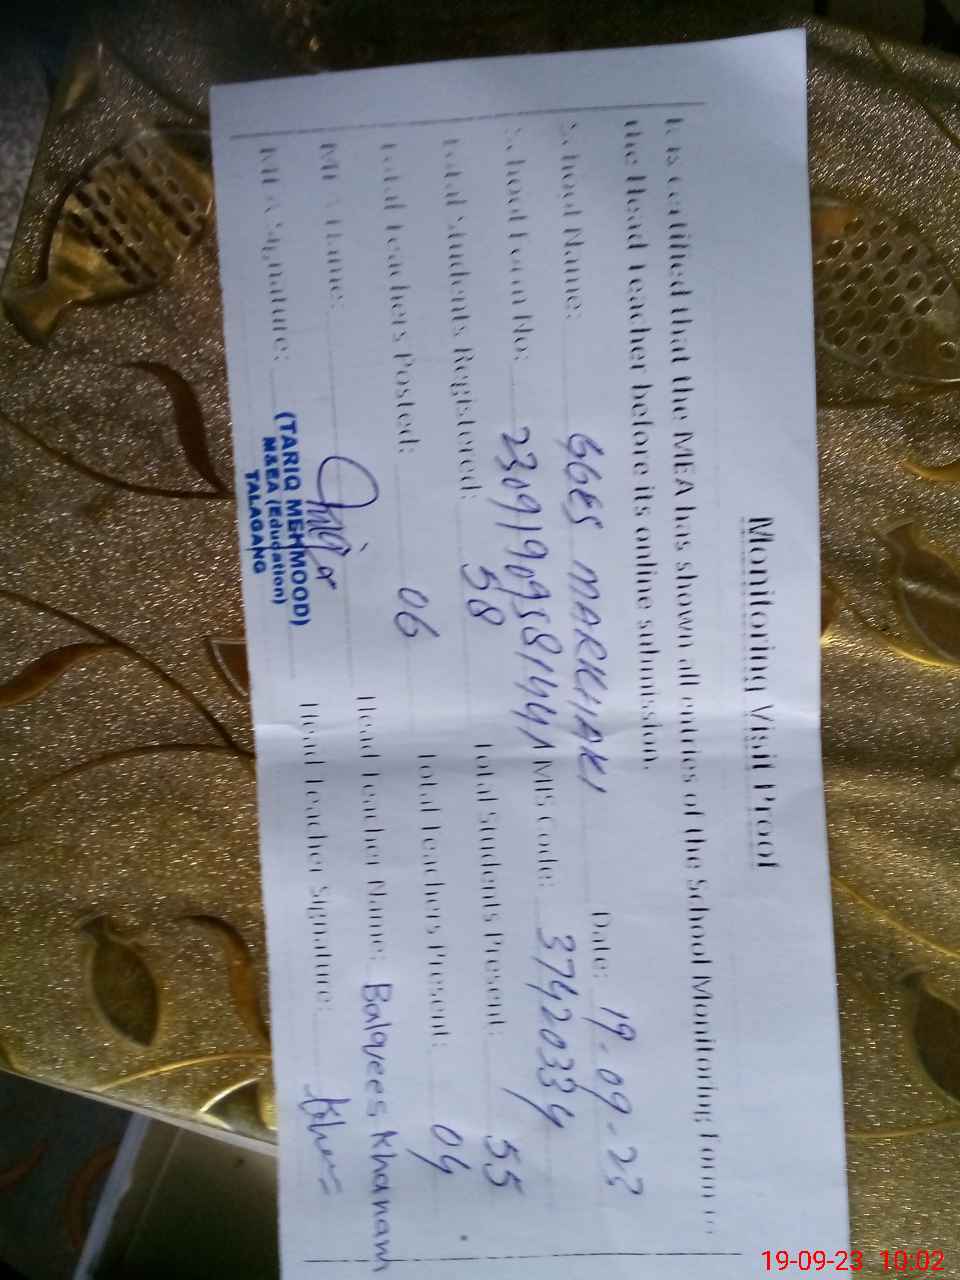 Monitoring Visit Proof
It is certified that the MEA has shown all entries of the School Monitoring Form to
the Head Teacher before its online submission.
School Name: GGES MARKHAKI Date: 19-09-23
School Form No: MIS Code: 37420334
Total Students Registered: 58 Total Students Present: 55
Total Teachers Posted: 06 Total Teachers Present: 04
MEA Name: Head Teacher Name: Balqees Khanam
MEA Signature: Head Teacher Signature:
(TARIQ MEHMOOD)
M&EA (Education)
TALAGANG
19-09-23 10:02